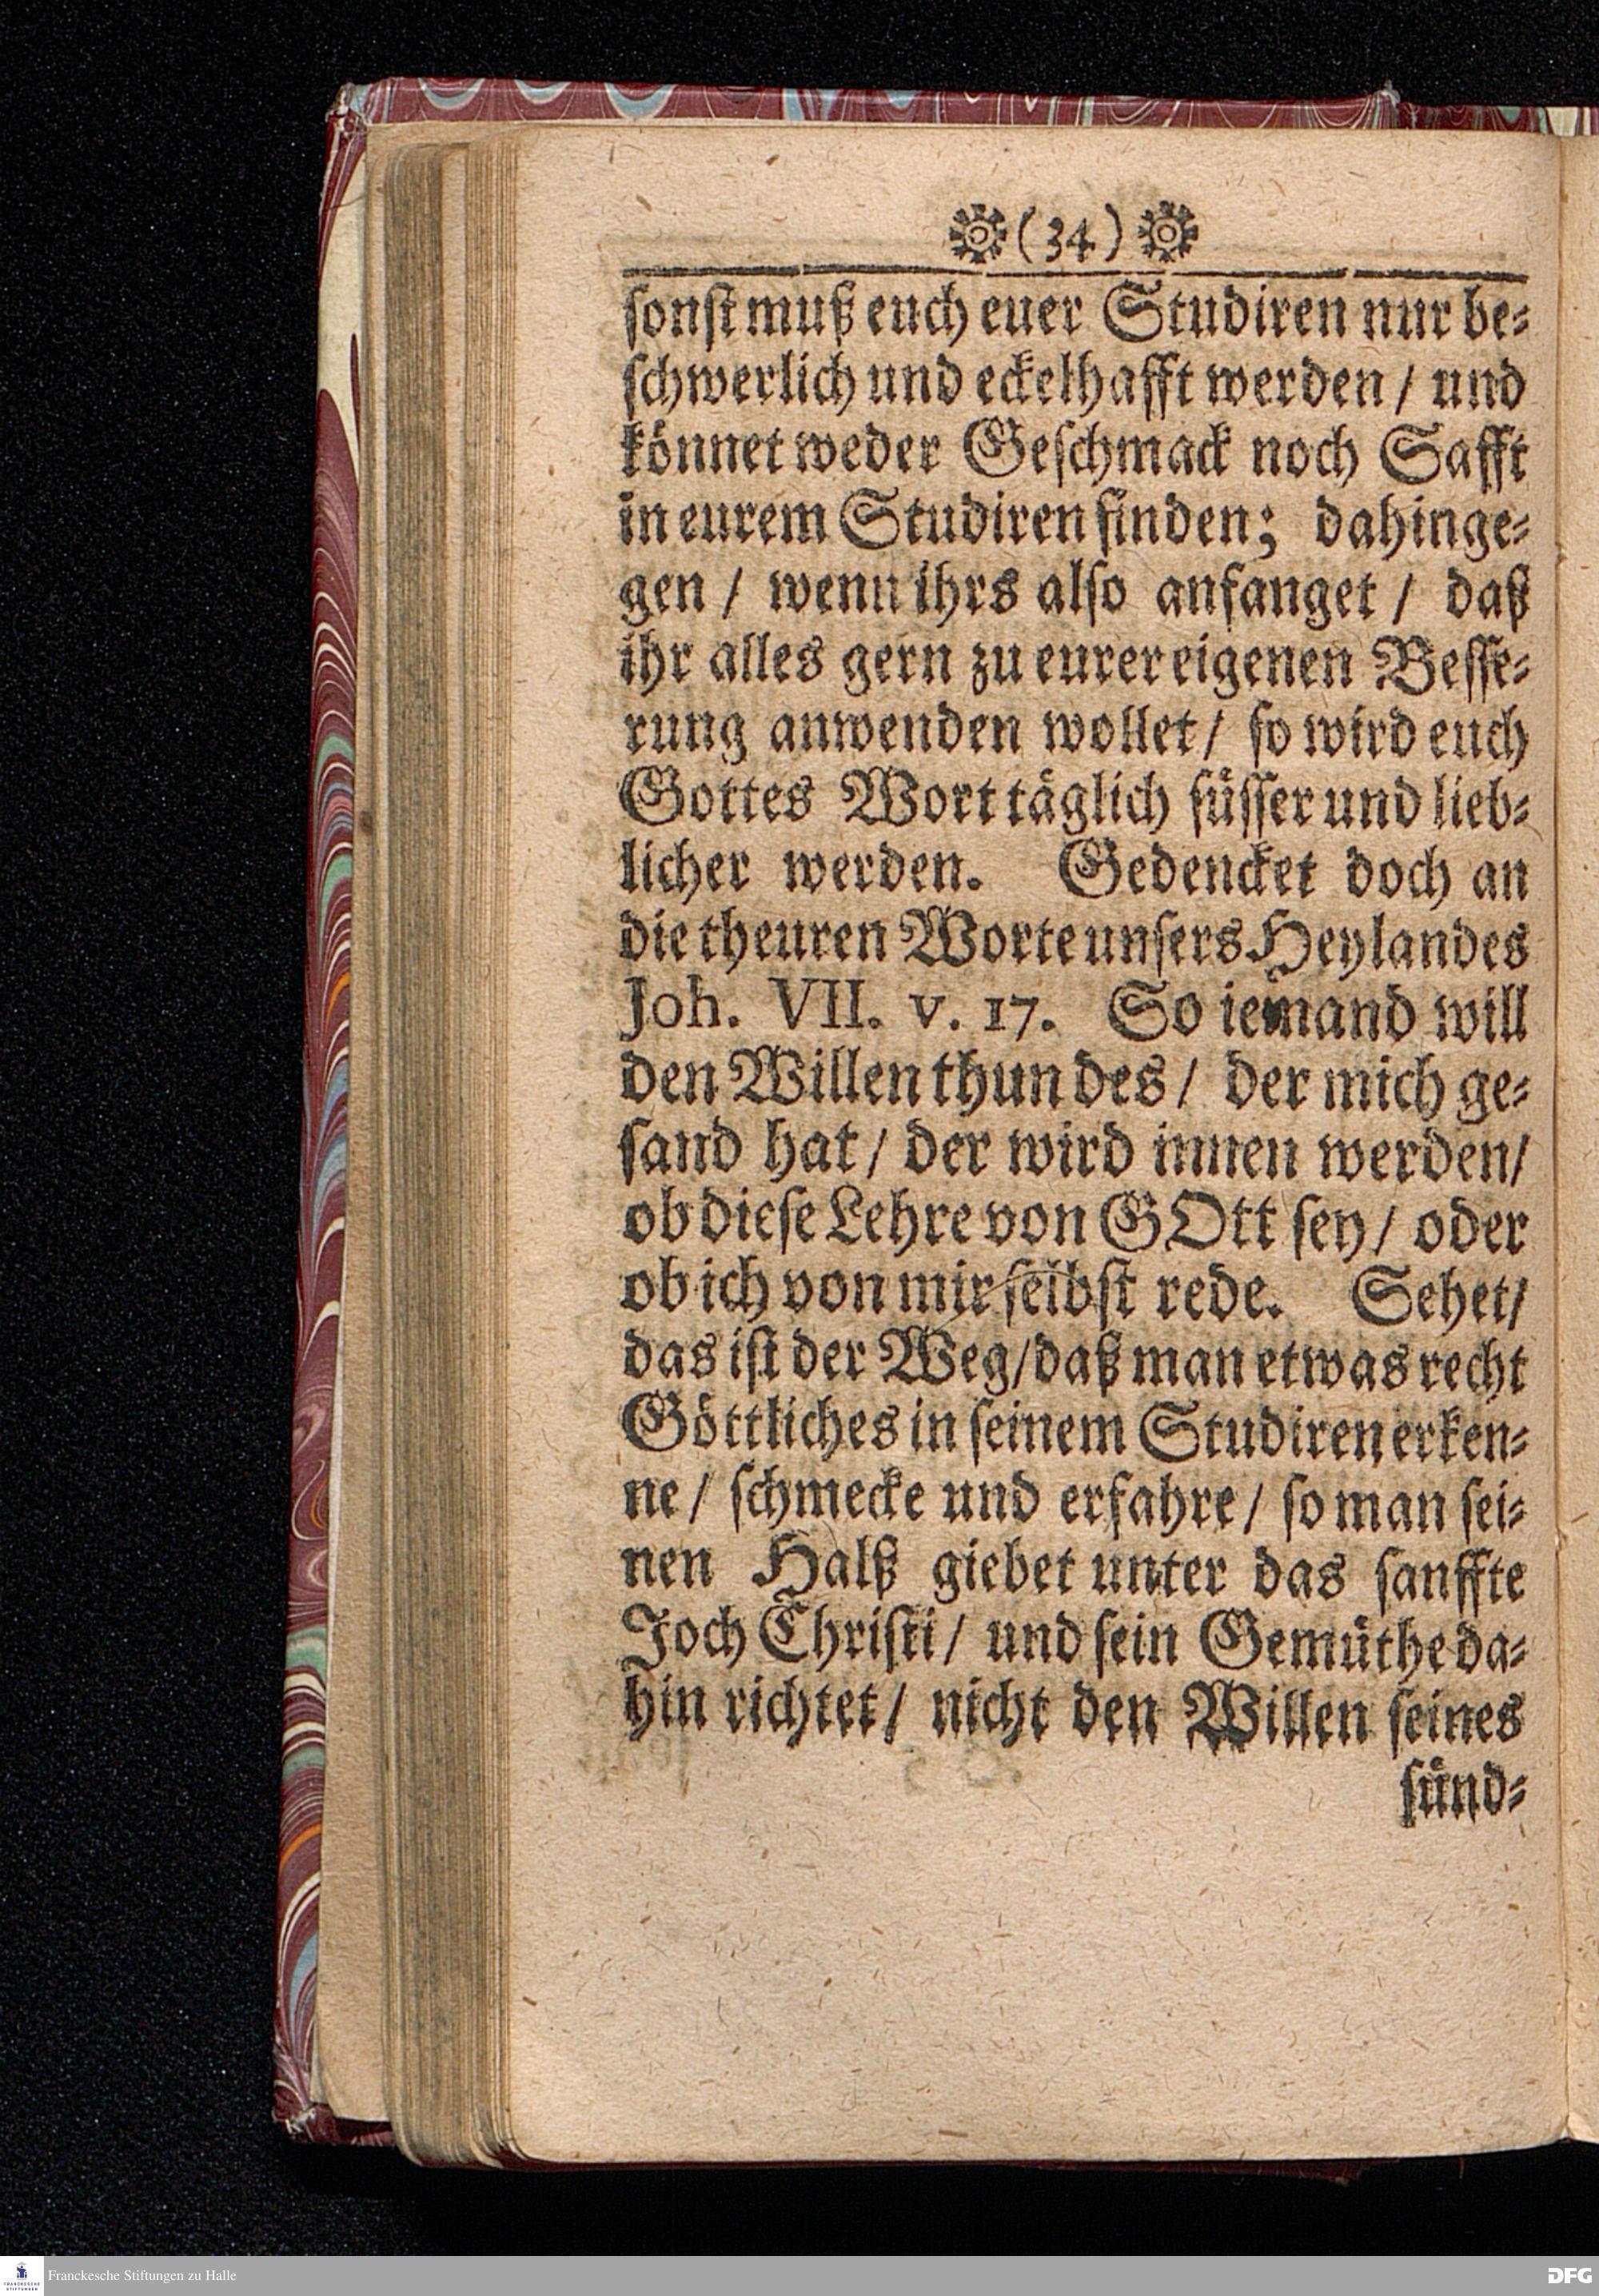 (34)
sonst muß euch euer Studiren nur be⸗
schwerlich und eckelhafft werden / und
könnet weder Geschmack noch Safft
in eurem Studiren finden; dahinge⸗
gen / wenn ihrs also anfanget / daß
ihr alles gern zu eurer eigenen Besse⸗
rung anwenden wollet / so wird euch
Gottes Wort täglich süsser und lieb⸗
licher werden. Gedencket doch an
die theuren Worte unsers Heylandes
Joh. VII. v. 17. So iemand will
den Willen thun des / der mich ge⸗
sand hat / der wird innen werden /
ob diese Lehre von GOtt sey / oder
ob ich von mir selbst rede. Sehet /
das ist der Weg / daß man etwas recht
Göttliches in seinem Studiren erken⸗
ne / schmecke und erfahre / so man sei⸗
nen Halß giebet unter das sanffte
Joch Christi / und sein Gemüthe da⸗
hin richtet / nicht den Willen seines
sünd⸗
FRANCKESCHE STIFTUNGEN
Franckesche Stiftungen zu Halle
DFG